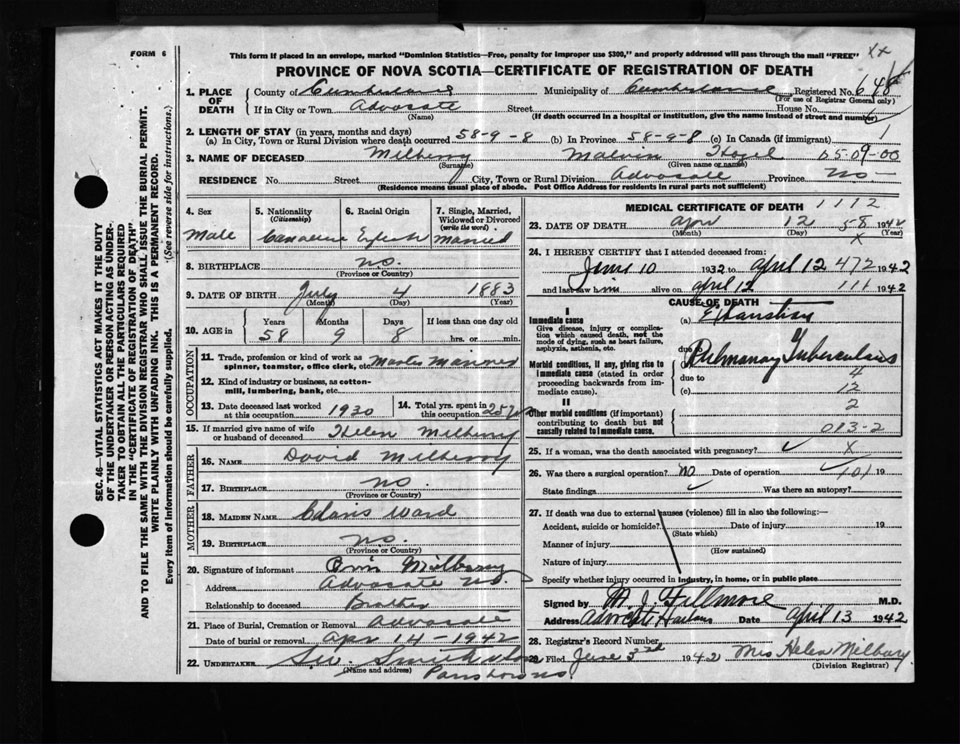 FORM 6
This form if placed in an envelope, marked "Dominion Statistics—Free, penalty for improper use $300," and properly addressed will pass through the mail "FREE"
PROVINCE OF NOVA SCOTIA—CERTIFICATE OF REGISTRATION OF DEATH
1. PLACE OF DEATH
County of Cumberland Municipality of Cumberland Registered No. 648
(For use of Registrar General only)
If in City or Town Advocate Street House No.
(Name) (If death occurred in a hospital or institution, give the name instead of street and number)
2. LENGTH OF STAY (in years, months and days)
(a) In City, Town or Rural Division where death occurred 58-9-8 (b) In Province 58-9-8 (c) In Canada (if immigrant)
3. NAME OF DECEASED Milberry Malvin 05-09-00
(Surname) (Given name or names)
RESIDENCE No. Street City, Town or Rural Division Advocate Province N.S.
(Residence means usual place of abode. Post Office Address for residents in rural parts not sufficient)
4. Sex
Male
5. Nationality (Citizenship)
Canadian
6. Racial Origin
English
7. Single, Married, Widowed or Divorced (write the word)
Married
8. BIRTHPLACE N.S.
(Province or Country)
9. DATE OF BIRTH July 4 1883
(Month) (Day) (Year)
10. AGE in Years Months Days If less than one day old
58 9 8 hrs. or min.
OCCUPATION
11. Trade, profession or kind of work as spinner, teamster, office clerk, etc. Master Mariner
12. Kind of industry or business, as cotton-mill, lumbering, bank, etc.
13. Date deceased last worked at this occupation 1930
14. Total yrs. spent in this occupation 25
15. If married give name of wife or husband of deceased Helen Milberry
FATHER
16. NAME David Milberry
17. BIRTHPLACE N.S.
(Province or Country)
MOTHER
18. MAIDEN NAME Ward
19. BIRTHPLACE N.S.
(Province or Country)
20. Signature of informant Milberry
Address Advocate N.S.
Relationship to deceased Brother
21. Place of Burial, Cremation or Removal Advocate
Date of burial or removal Apr 14-1942
22. UNDERTAKER
(Name and address)
Parrsboro N.S.
MEDICAL CERTIFICATE OF DEATH 1112
23. DATE OF DEATH Apr 12 58 1942
(Month) (Day) (Year)
X
24. I HEREBY CERTIFY that I attended deceased from:
June 10 1932 to April 12 472 1942
and last saw him alive on April 12 111 1942
CAUSE OF DEATH
I
Immediate cause
Give disease, injury or complication which caused death, not the mode of dying, such as heart failure, asphyxia, asthenia, etc.
(a) Exhaustion
due to
Morbid conditions, if any, giving rise to immediate cause (stated in order proceeding backwards from immediate cause).
Pulmonary Tuberculosis
due to 4
(c) 12
II
Other morbid conditions (if important) contributing to death but not causally related to immediate cause.
2
013-2
25. If a woman, was the death associated with pregnancy? X
26. Was there a surgical operation? NO Date of operation 101 19
State findings Was there an autopsy?
27. If death was due to external causes (violence) fill in also the following:—
Accident, suicide or homicide? Date of injury 19
(State which)
Manner of injury
(How sustained)
Nature of injury
Specify whether injury occurred in industry, in home, or in public place
Signed by M. J. Fillmore M.D.
Address Advocate Harbour Date April 13 1942
28. Registrar's Record Number
29. Filed June 3rd 1942 Mrs Helen Milbury
(Division Registrar)
SEC. 46—VITAL STATISTICS ACT MAKES IT THE DUTY
OF THE UNDERTAKER OR PERSON ACTING AS UNDER-
TAKER TO OBTAIN ALL THE PARTICULARS REQUIRED
IN THE "CERTIFICATE OF REGISTRATION OF DEATH"
AND TO FILE THE SAME WITH THE DIVISION REGISTRAR WHO SHALL ISSUE THE BURIAL PERMIT.
WRITE PLAINLY WITH UNFADING INK. THIS IS A PERMANENT RECORD.
Every item of information should be carefully supplied. (See reverse side for instructions.)